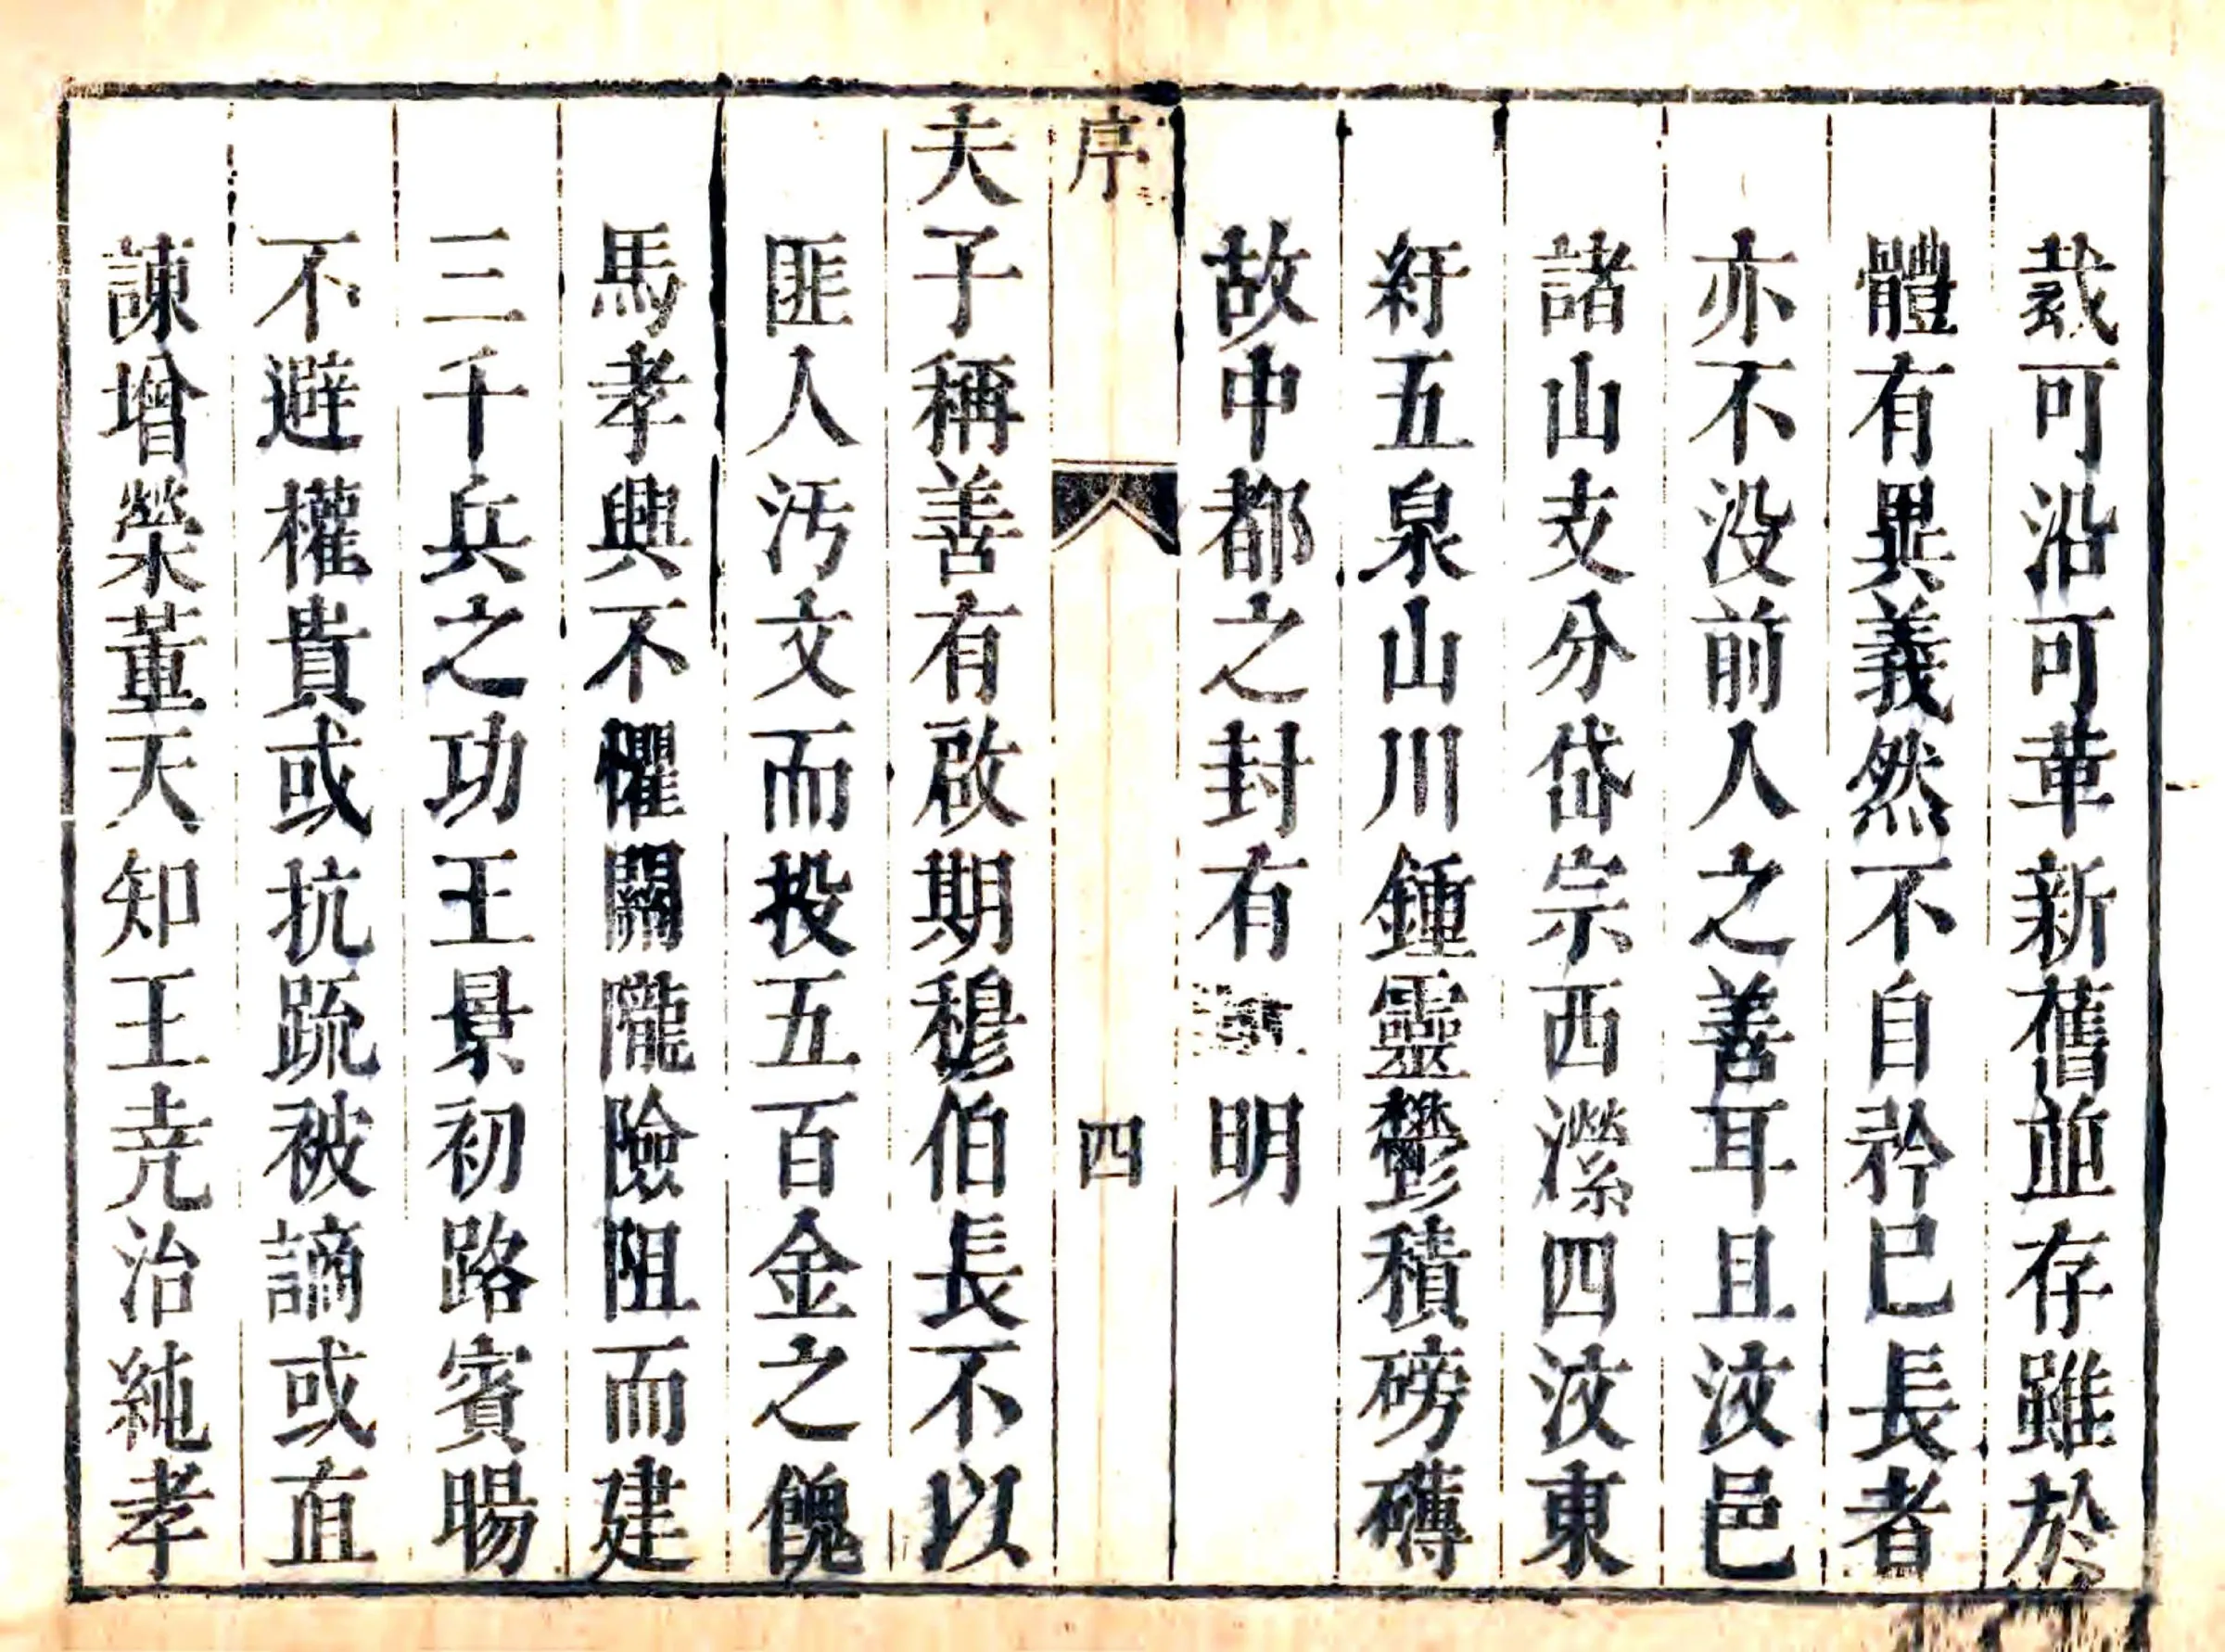 裁可沿可革新舊並存雖於
體有異義然不自矜巳長者
亦不没前人之善耳且汶邑
諸山支分岱宗西瀠四汶東
紆五泉山川鍾靈鬱積磅礴
故中都之封有 明
序 四
夫子稱善有啟期穆伯長不以
匪人汚文而投五百金之餽
馬孝興不懼關隴險阻而建
三千兵之功王景初路賓暘
不避權貴或抗䟽被謫或直
諫增榮董天知王尭治純孝